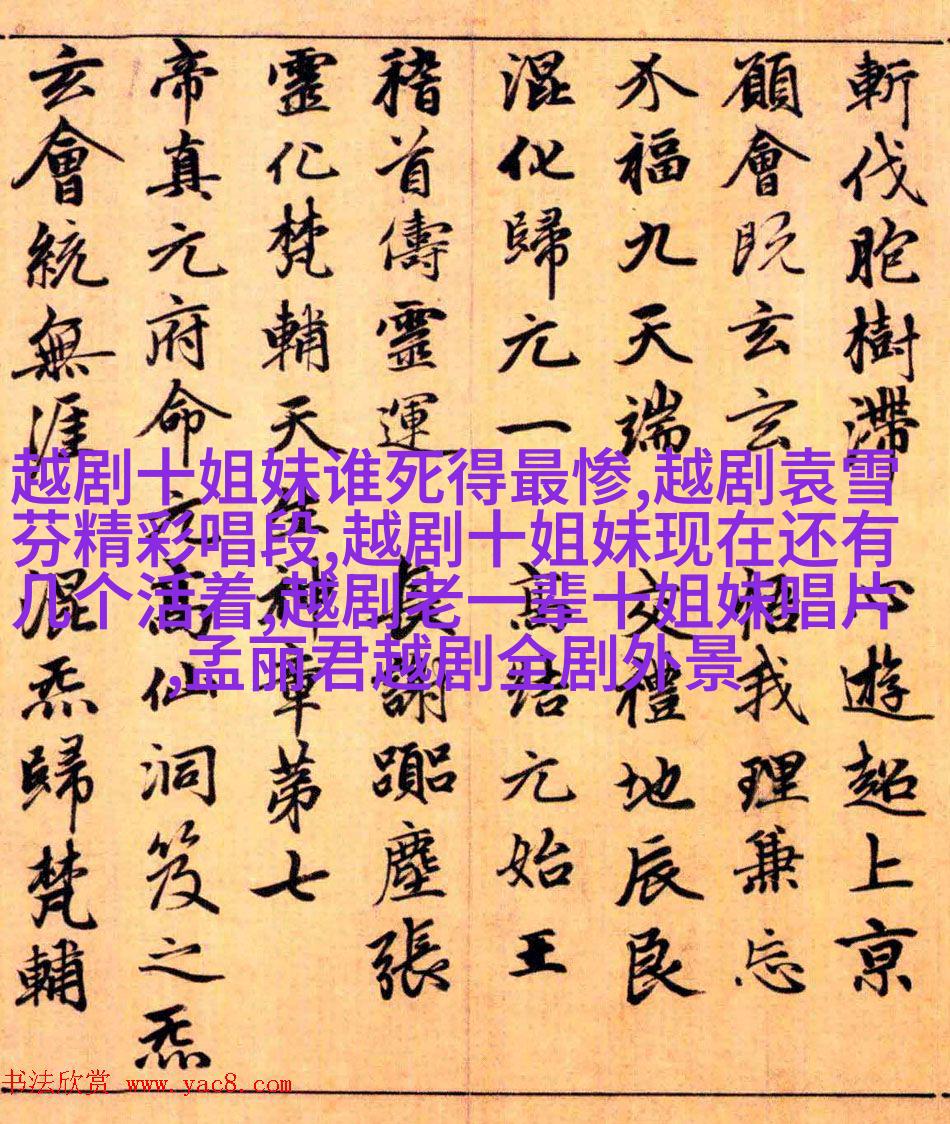 斬伐胞樹滯心遊超上京
願會既玄玄悟我理兼忘
介福九天端交禮地辰良
混化歸元一高結元始王
稽首儔靈運長謝塵張
靈化梵輔天神章第七
帝真元府命元高仙洞笈之炁
玄會統無涯混炁歸梵輔
越剧十姐妹谁死得最惨,越剧袁雪
芬精彩唱段,越剧十姐妹现在还有
几个活着,越剧老一辈十姐妹唱片
,孟丽君越剧全剧外景
书法欣赏 www.yac8.com